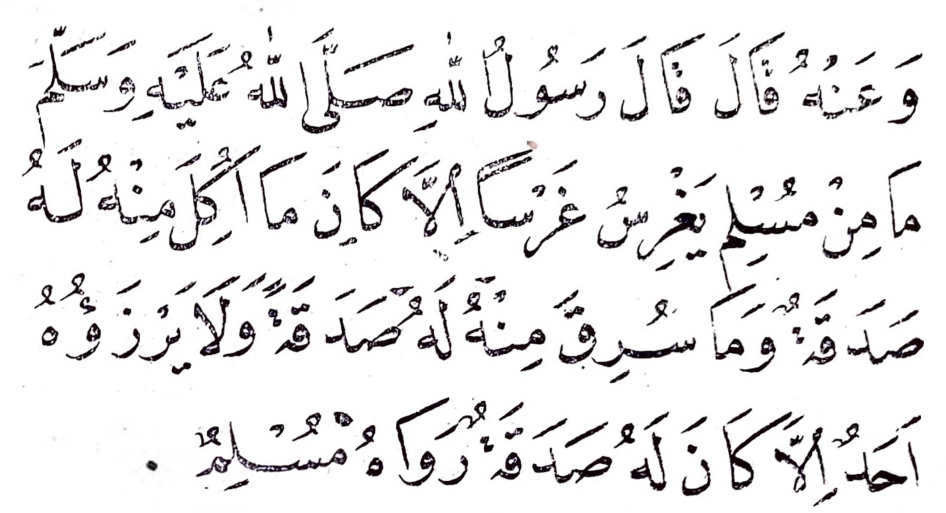 وَعَنْهُ قَالَ قَالَ رَسُولُ اللهِ صَلَّى اللهُ عَلَيْهِ وَسَلَّمَ
مَا مِنْ مُسْلِمٍ يَغْرِسُ غَرْسًا اِلَّا كَانَ مَا اُكِلَ مِنْهُ لَهُ
صَدَقَةٌ وَمَا سُرِقَ مِنْهُ لَهُ صَدَقَةً وَلَا يَرْزَؤُهُ
اَحَدٌ اِلَّا كَانَ لَهُ صَدَقَةٌ رَوَاهُ مُسْلِمٌ